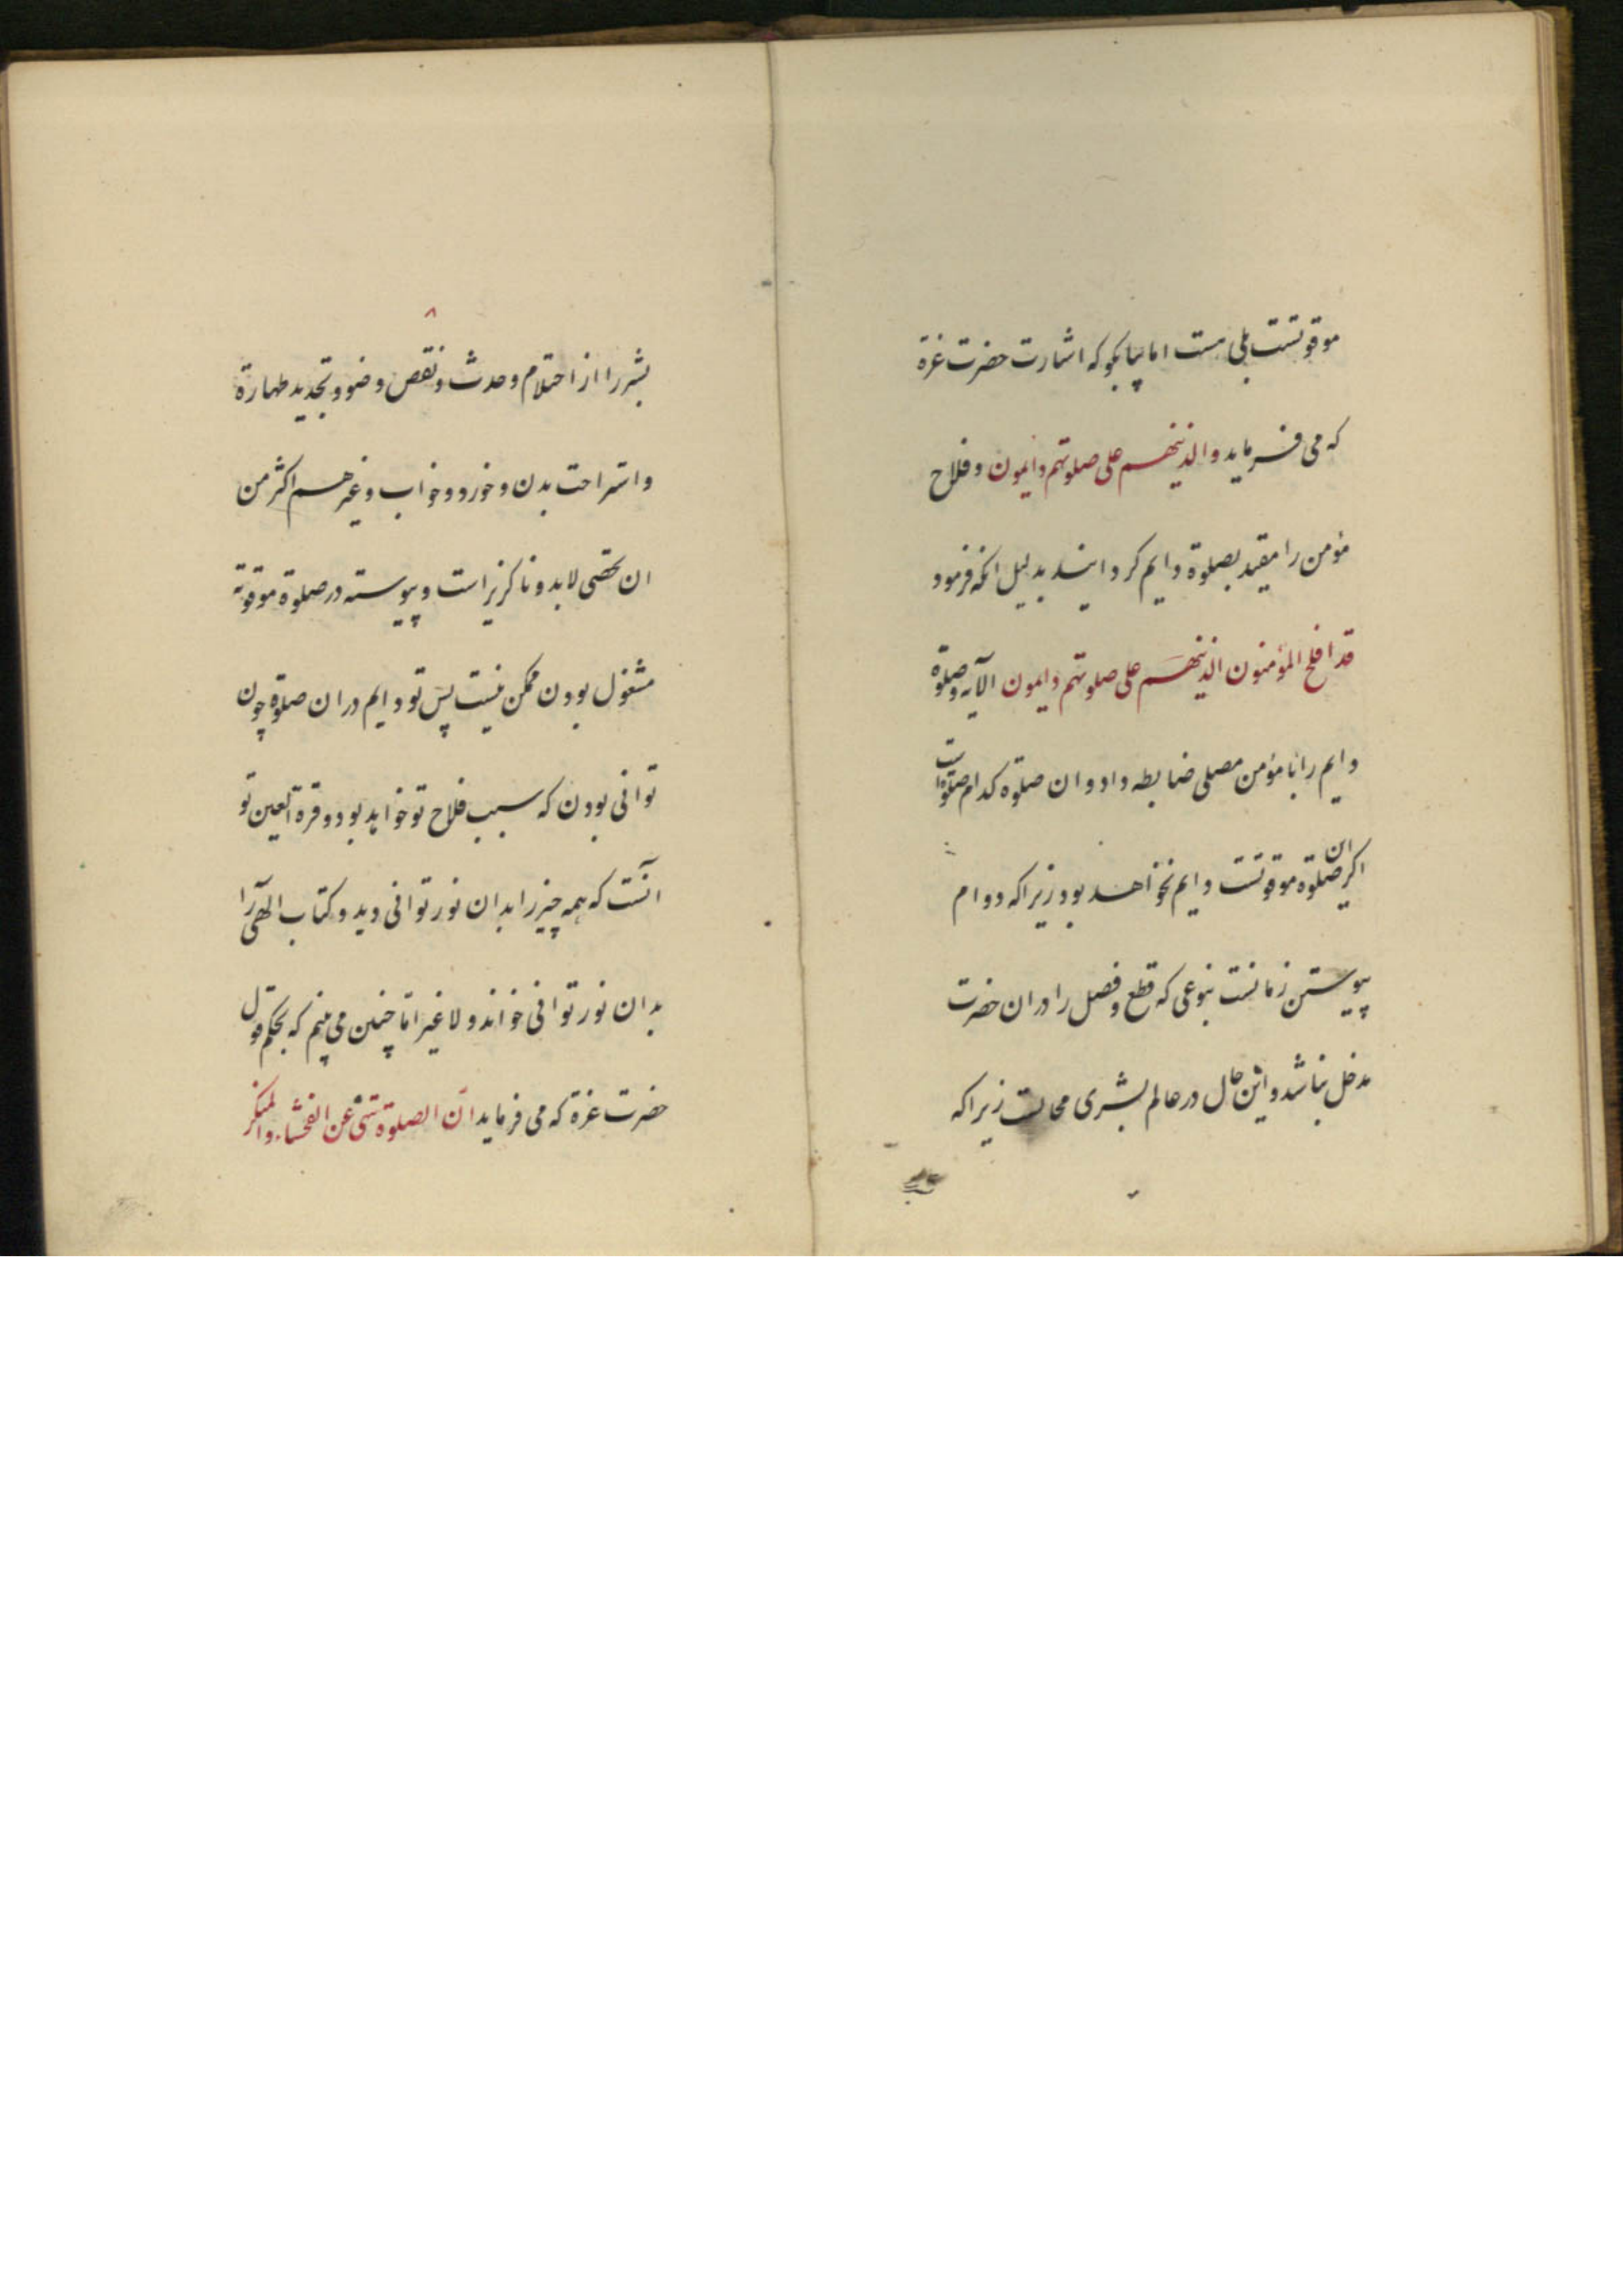 موقوتست بلی هست اما بیا بکو که اشارت حضرت عزة
که می فرماید والذینهم علی صلوتهم دایمون وفلاح
مؤمن را مقید بصلوة دایم کردانید بدلیل انکه فرمود
قد افلح المؤمنون الذینهم علی صلوتهم دایمون الآیه وصلوة
دایم را با مؤمن مصلی ضابطه داد وان صلوة کدام صلوة است
اکر ان صلوة موقوتست دایم نخواهد بود زیرا که دوام
پیوستن زمانست بنوعی که قطع وفصل را در ان حضرت
مدخل نباشد واین حال در عالم بشری محالست زیرا که
۸
بشر را از احتلام وحدث ونقص وضو وتجدید طهارة
واستراحت بدن وخورد وخواب وغیرهم اکثر من
ان تحصی لابد وناکزیر است وپیوسته در صلوة موقوته
مشغول بودن ممکن نیست پس تو دایم در ان صلوة چون
توانی بودن که سبب فلاح تو خواهد بود وقرة العین تو
آنست که همه چیز را بدان نور توانی دید وکتاب الهی را
بدان نور توانی خواند ولا غیر اما چنین می بینم که بحکم قول
حضرت عزة که می فرماید ان الصلوة تنهی عن الفحشاء والمنکر